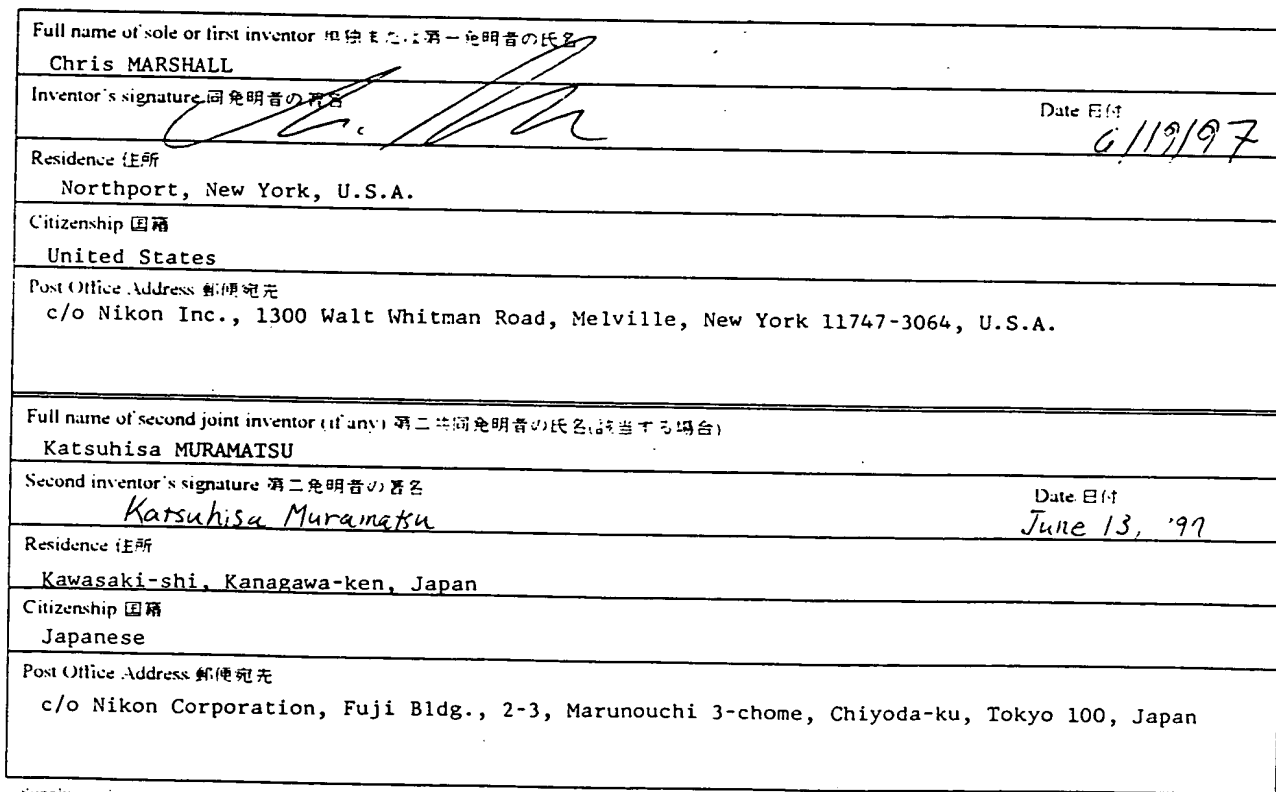 Full name of sole or first inventor 単独または第一発明者の氏名
Chris MARSHALL
Inventor's signature 同発明者の署名 Date 日付
6/19/97
Residence 住所
Northport, New York, U.S.A.
Citizenship 国籍
United States
Post Office Address 郵便宛先
c/o Nikon Inc., 1300 Walt Whitman Road, Melville, New York 11747-3064, U.S.A.
Full name of second joint inventor (if any) 第二共同発明者の氏名(該当する場合)
Katsuhisa MURAMATSU
Second inventor's signature 第二発明者の署名 Date 日付
Katsuhisa Muramatsu June 13, '97
Residence 住所
Kawasaki-shi, Kanagawa-ken, Japan
Citizenship 国籍
Japanese
Post Office Address 郵便宛先
c/o Nikon Corporation, Fuji Bldg., 2-3, Marunouchi 3-chome, Chiyoda-ku, Tokyo 100, Japan